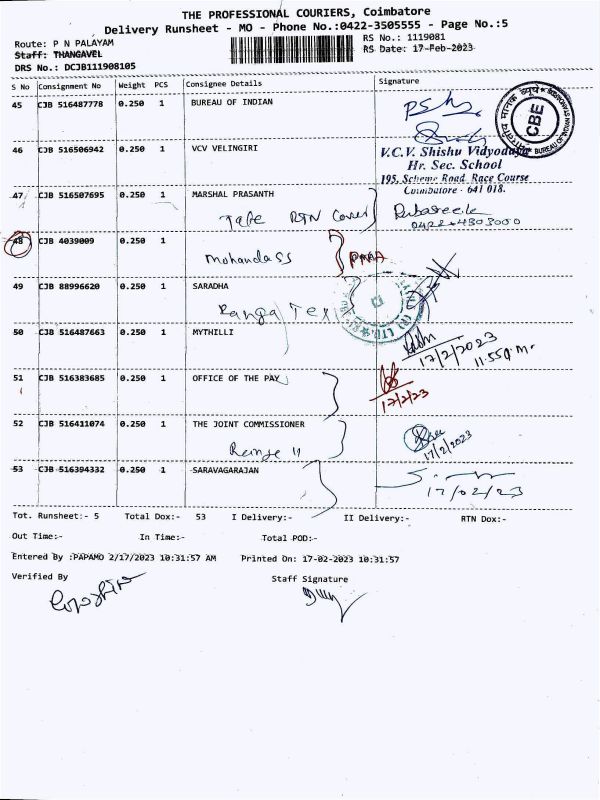 THE PROFESSIONAL COURIERS, Coimbatore
Delivery Runsheet - MO - Phone No.:0422-3505555 - Page No.:5
Route: P N PALAYAM
RS No.: 1119081
Staff: THANGAVEL
RS Date: 17-Feb-2023
DRS No.: DCJB111908105
S No Consignment No Weight PCS Consignee Details Signature
45 CJB 516487778 0.250 1 BUREAU OF INDIAN
CBE
BUREAU OF INDIAN STANDARDS
46 CJB 516506942 0.250 1 VCV VELINGIRI
V.C.V. Shishu Vidyodaya
Hr. Sec. School
195, Scheme Road, Race Course
Coimbatore - 641 018.
47 CJB 516507695 1 0.250 1 MARSHAL PRASANTH
Tape RTN Cover
0422 4303000
48 CJB 4039009 0.250 1
Mohandass
49 CJB 88996620 0.250 1 SARADHA
Ranga Tex
50 CJB 516487663 0.250 1 MYTHILLI
17/2/2023
11.55 a.m.
51 CJB 516383685 0.250 1 OFFICE OF THE PAY
17/2/23
52 CJB 516411074 0.250 1 THE JOINT COMMISSIONER
Range II
17/2/2023
53 CJB 516394332 0.250 1 SARAVAGARAJAN
17/02/23
Tot. Runsheet:- 5 Total Dox:- 53 I Delivery:- II Delivery:- RTN Dox:-
Out Time:- In Time:- Total POD:-
Entered By :PAPAMO 2/17/2023 10:31:57 AM Printed On: 17-02-2023 10:31:57
Verified By Staff Signature